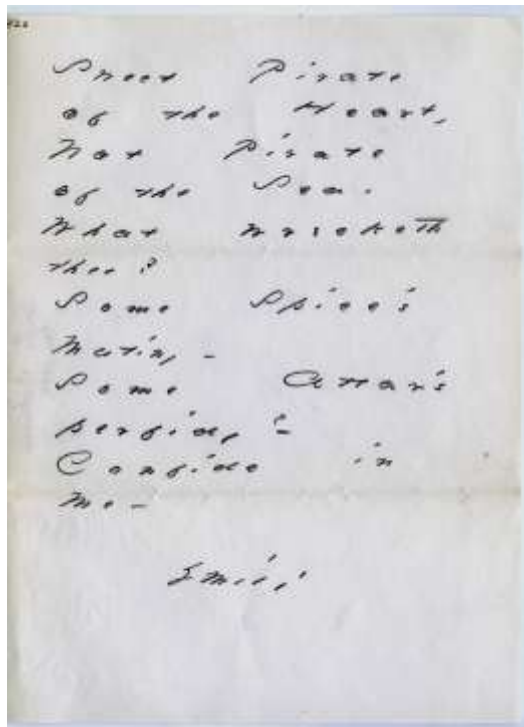 Sweet Pirate
of the Heart,
Not Pirate
of the Sea.
What wrecketh
thee?
Some Spice's
Mutiny -
Some Attar's
perfidy -
Confide in
me -
Emily